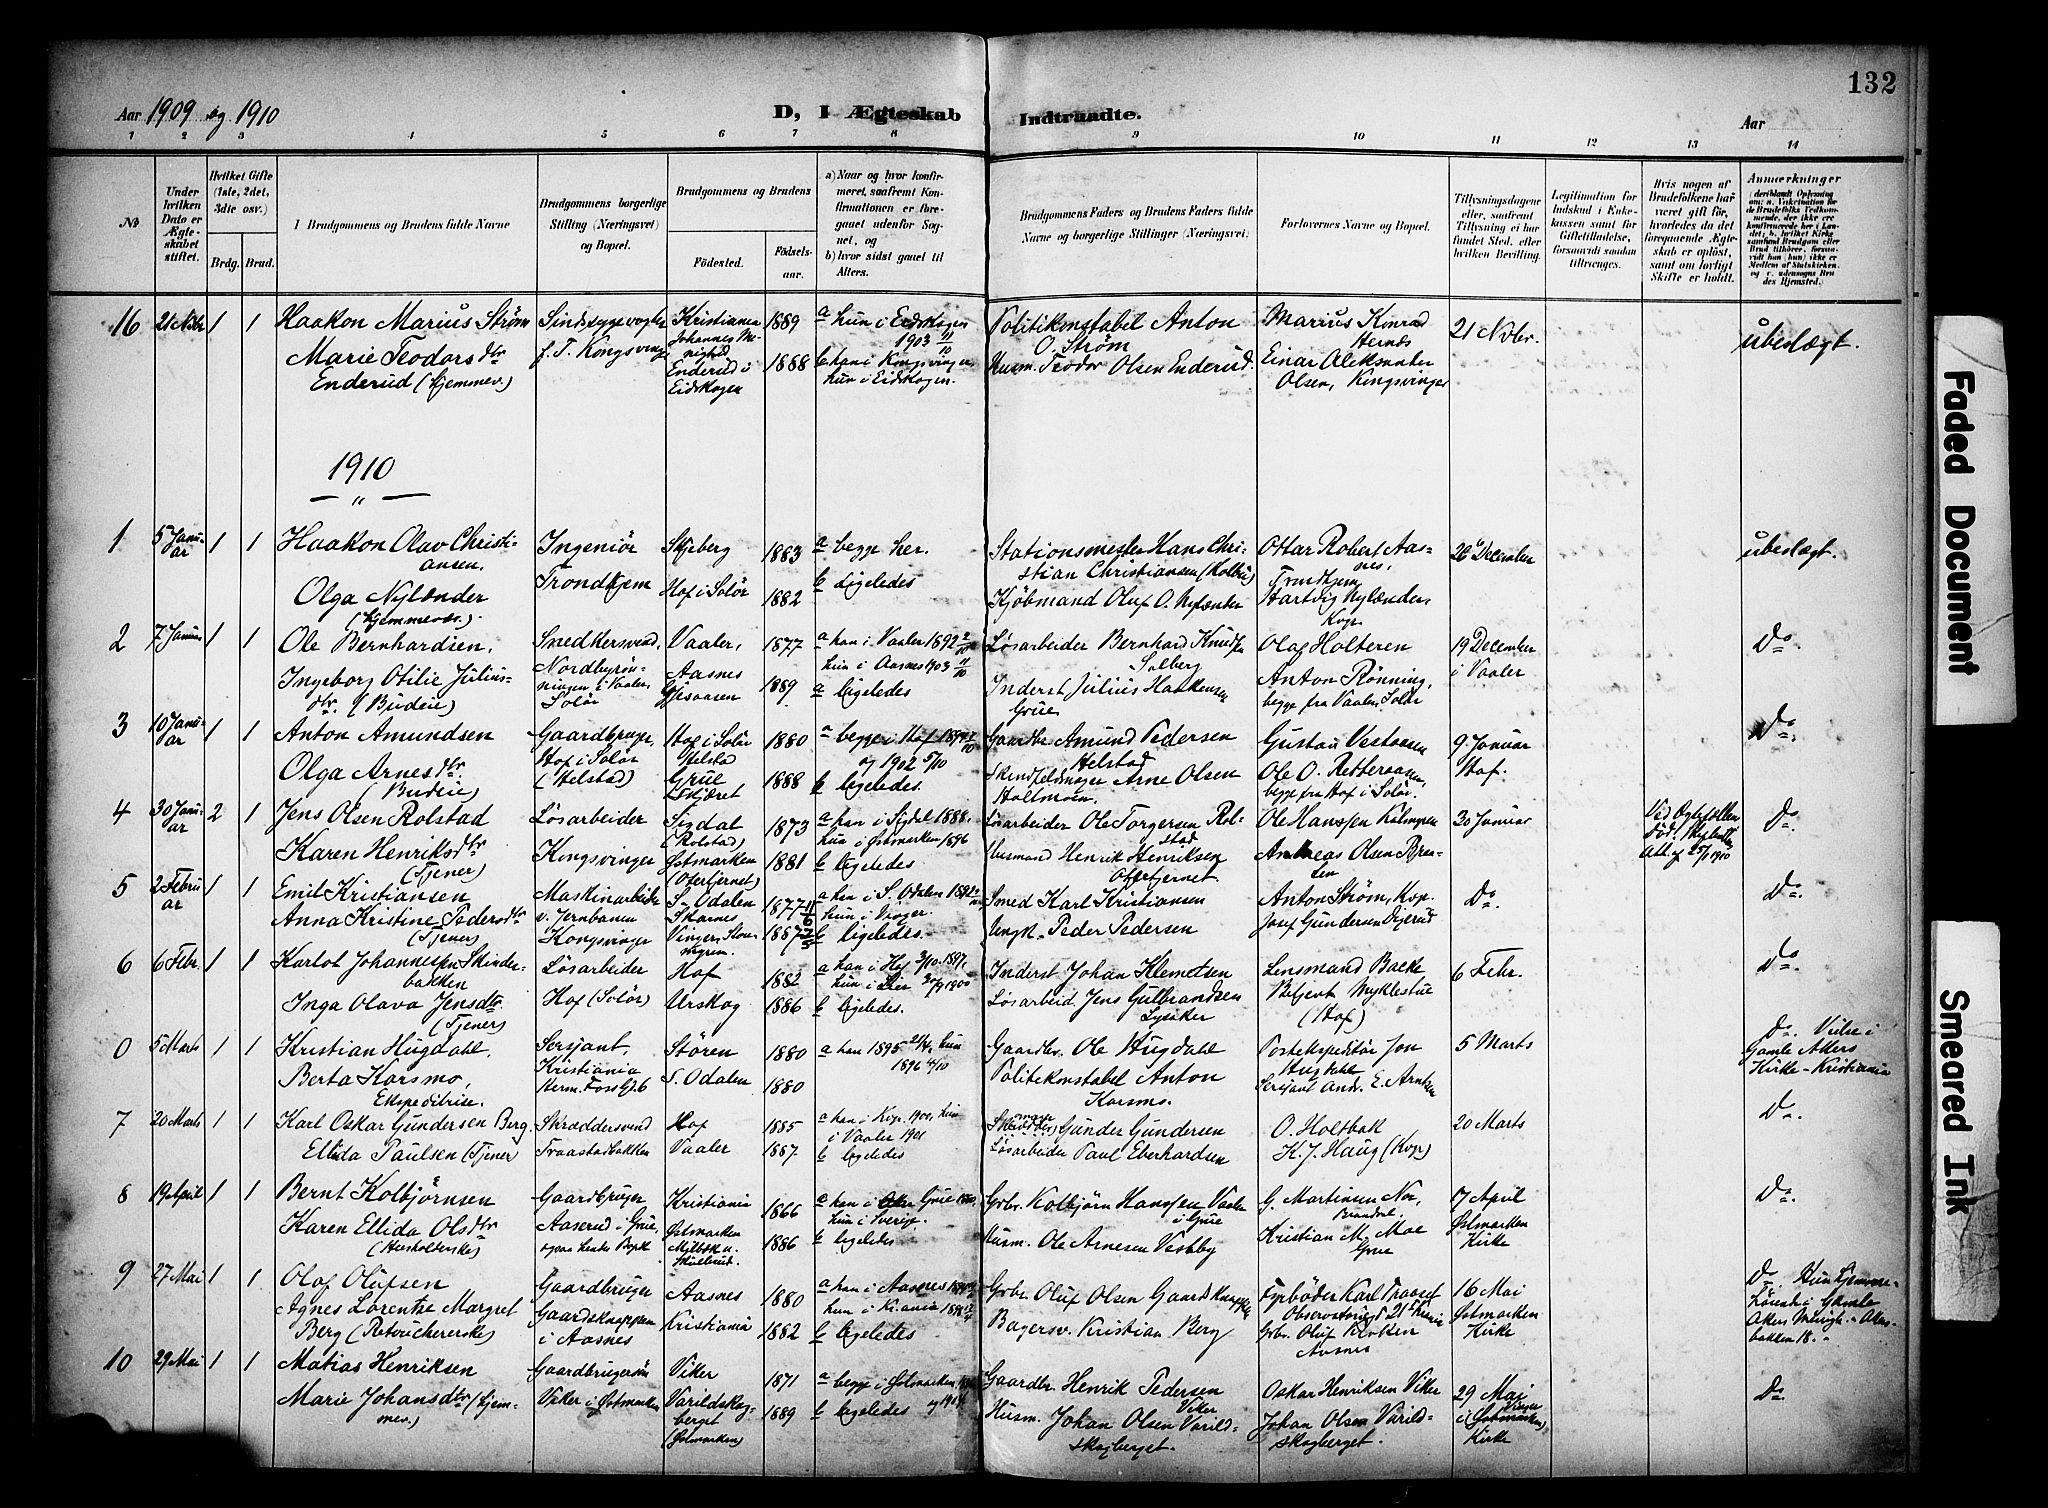 132
Aar 1909 og 1910
D, I Ægteskab Indtraadte.
Aar
1 2 3 4 5 6 7 8 9 10 11 12 13 14
No
Under hvilken Dato er Ægteskabet stiftet.
Hvilket Gifte (1ste, 2det, 3die osv.)
Brdg. Brud.
I Brudgommens og Brudens fulde Navne
Brudgommens borgerlige Stilling (Næringsvei) og Bopæl.
Brudgommens og Brudens
Fødested.
Fødselsaar.
a) Naar og hvor konfirmeret, saafremt Konfirmationen er foregaaet udenfor Sognet, og
b) hvor sidst gaaet til Alters.
Brudgommens Faders og Brudens Faders fulde Navne og borgerlige Stillinger (Næringsvei)
Forlovernes Navne og Bopæl.
Tillysningsdagene eller, saafremt Tillysning ei har fundet Sted, efter hvilken Bevilling.
Legitimation for Indskud i Enkekassen samt for Giftetilladelse, forsaavidt saadan tiltrænges.
Hvis nogen af Brudefolkene har været gift før, hvorledes da det foregaaende Ægteskab er opløst, samt om lovligt Skifte er holdt.
Anmærkninger
16 21 Nvbr 1 1
Haakon Marius Strøm
Marie Teodorsdtr
Enderud (hjemmev.)
Sindssygevogter
f. T. Kongsvinger
Kristiania
Enderud i
Eidskogen
1889
1888
a hun i Eidskogen
1903 11/10
b han i Kongsvinger,
hun i Eidskogen.
Politikonstabel Anton
O. Strøm
Husm. Teodor Olsen Enderud.
Marius Konrad
Hernæs
Einar Aleksander
Olsen, Kongsvinger
21 Nvbr.
ubeslægt.
1910
1 5 Januar 1 1
Haakon Olav Christiansen.
Olga Nylænder
(hjemmevær.)
Ingeniør
Trondhjem
Skjeberg
Hof i Solør
1883
1882
a begge her.
b Ligeledes
Stationsmester Hans Christian Christiansen
Kjøbmand Oluf O. Nylænder
Ottar Robert Aasnes,
Trondhjem
Hartvig Nylænder,
Kvgr.
26 December
ubeslægt.
2 7 Januar 1 1
Ole Bernhardsen,
Ingeborg Otilie Juliusdtr. (Budeie)
Snedkersvend,
Vaaler,
Solør
Vaaler,
Aasnes
1877
1889
a han i Vaaler 1892
hun i Aasnes 1903
b ligeledes
Løsarbeider Bernhard
Solberg
Inderst Julius Haakensen
Grue
Olaf Holteren
Anton Rønning,
begge fra Vaaler, Solør
19 December
i Vaaler
Do.
3 10 Januar 1 1
Anton Amundsen
Olga Arnesdtr.
(Budeie)
Gaardbruger,
Hof i Solør
(Helstad)
Hof i Solør
Helstad
Grue
Skjæret
1880
1888
a begge i Hof
og 1902 5/10
b ligeledes
Gaardbr. Amund Pedersen
Helstad
Arne Olsen
Holtmoen.
Gustav
Ole O.
begge fra Hof i Solør.
9 Januar
Hof.
Do.
4 30 Januar 2 1
Jens Olsen Rolstad
Karen Henriksdtr
(Tjener)
Løsarbeider
Kongsvinger
Sigdal
(Rolstad)
Østmarken
(Oterbjernet)
1873
1881
a han i Sigdal 1888,
hun i Østmarken 1896
b ligeledes
Løsarbeider Ole Torgersen Rolstad
Husmand Henrik Henriksen
Oterbjernet.
Ole Hanssen
Andreas Olsen
30 Januar
Do.
5 2 Februar 1 1
Emil Kristiansen
Anna Kristine Pedersdtr
(Tjener)
Maskinarbeider
v. Jernbanen
Kongsvinger
S. Odalen
Skarnes
Vinger,
1877
1887
a han i S. Odalen
hun i Vinger.
b ligeledes.
Smed Karl Kristiansen
Peder Pedersen
Anton Strøm, Kvgr.
Josef Gundersen
Do.
Do.
6 6 Febr. 1 1
Karlot Johannessen Skinderbakken
Inga Olava Jensdtr
(Tjener)
Løsarbeider
Hof (Solør)
Hof
Urskog
1882
1886
a han i Hof
b ligeledes.
Inderst Johan Klemetsen
Løsarbeid. Jens Gulbrandsen
Lysaker
Lensmand Bakke
Betjent Myklestue
(Hof)
6 Febr.
Do.
0 5 Marts 1 1
Kristian Hugdahl,
Berta Korsmo,
Ekspeditrise.
Sersjant,
Kristiania
Støren
S. Odalen
1880
1880
a han 1895
1896 4/10
Gaardbr. Ole Hugdahl
Politikonstabel Anton
Korsmo.
Postekspeditør Jon
Hugdahl
Sersjant And. E.
5 Marts
Do. Vilse i
Gamle Akers
Kirke - Kristiania
7 20 Marts 1 1
Karl Oskar Gundersen Berg
Ellida Paulsen (Tjener)
Skræddersvend
Traastadbakken
Hof
Vaaler
1885
1887
a han i Kvgr. 1900, hun
i Vaaler 1901
b ligeledes
Gunder Gundersen
Løsarbeider Paul Eberhardsen
O. Holtbak
K. J. Haug (Kvgr)
20 Marts
Do.
8 19 April 1 1
Bernt Kolbjørnsen
Karen Ellida Olsdtr
(Husholderske)
Gaardbruger
Aaserud i Grue,
Kristiania
Østmarken
1866
1886
a han i Grue
hun i Sverige.
b ligeledes
Grbr. Kolbjørn Hanssen Vaaler
i Grue
Husm. Ole Arnesen Vestby
G. Martinsen Nor,
Brandval,
Kristian M. Moe
Grue
17 April
Østmarken
Kirke
Do.
9 27 Mai 1 1
Olaf Olufsen
Agnes Lorentze Margret
Berg (Retoucherske)
Gaardbruger
Gaardsknappen
i Aasnes
Aasnes
Kristiania
1880
1882
a han i Aasnes
hun i Kr.ania
b ligeledes
Grbr. Oluf Olsen Gaardsknappen
Bagersv. Kristian Berg
Fyrbøder Karl
Grbr. Oluf
Aasnes
16 Mai
Østmarken
Kirke
Do. Hun hjemmehørende i Gamle
Akers Menigh.
10 29 Mai 1 1
Matias Henriksen
Marie Johansdtr (hjemmev.)
Gaardbrugersøn
Viker i Østmarken
Viker
Varildskogberget
(Østmarken)
1871
1889
a begge i Østmarken
b ligeledes
Gaardbr. Henrik Pedersen
Viker
Husm. Johan Olsen Varildskogberget.
Oskar Henriksen Viker
Johan Olsen Varildskogberget.
29 Mai
i (Østmarken)
Kirke
Do
Faded Document
Smeared Ink